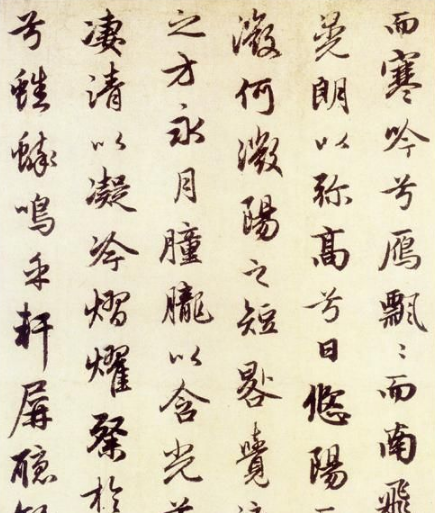 而寒吟兮鴈飄〻而南飛
晃朗以弥高兮日悠陽
微何微陽之短晷覺
之方永月朣朧以含光
凄清以凝冷熠燿粲於
兮蟋蟀鳴乎軒屏聽